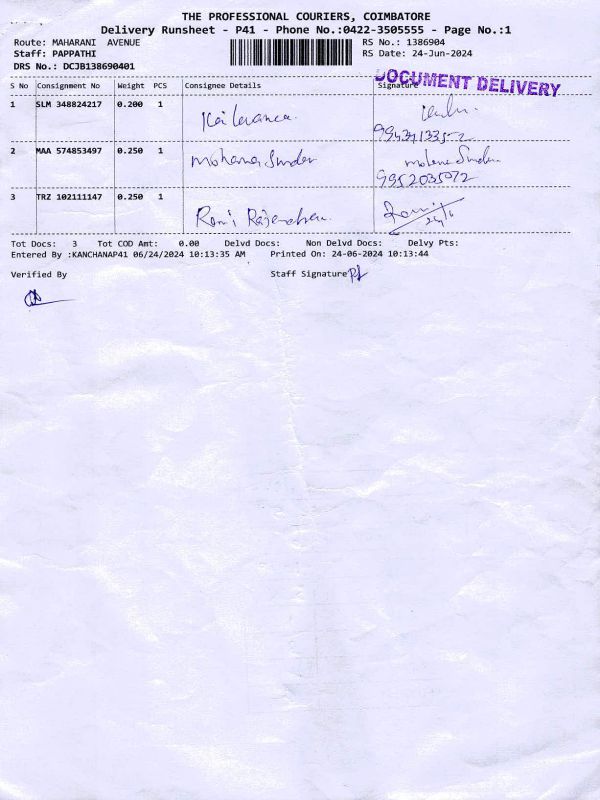 THE PROFESSIONAL COURIERS, COIMBATORE
Delivery Runsheet - P41 - Phone No.:0422-3505555 - Page No.:1
Route: MAHARANI AVENUE RS No.: 1386904
Staff: PAPPATHI RS Date: 24-Jun-2024
DRS No.: DCJB138690401
DOCUMENT DELIVERY
S No Consignment No Weight PCS Consignee Details Signature
1 SLM 348824217 0.200 1
2 MAA 574853497 0.250 1 Mohana Sunder
9952035072
3 TRZ 102111147 0.250 1 Rani Rajendran
Tot Docs: 3 Tot COD Amt: 0.00 Delvd Docs: Non Delvd Docs: Delvy Pts:
Entered By :KANCHANAP41 06/24/2024 10:13:35 AM Printed On: 24-06-2024 10:13:44
Verified By Staff Signature